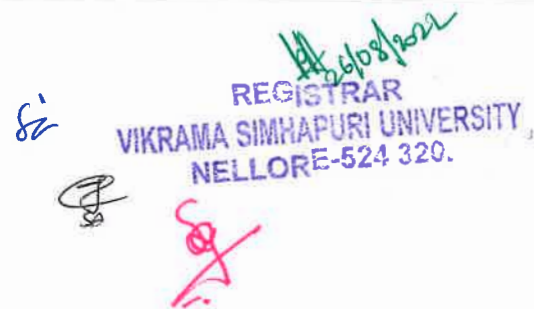 26/08/2022
REGISTRAR
VIKRAMA SIMHAPURI UNIVERSITY
NELLORE-524 320.